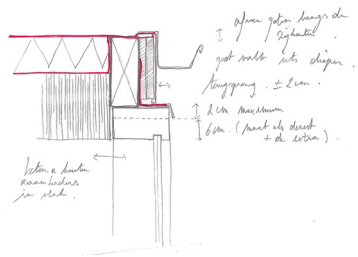 afvoer goten langs de
zijkanten
goot valt iets dieper
terugsprong ± 2cm.
2 cm maximum
6cm. (want als de rest
+ de extra).
beton & houten
in vlak.